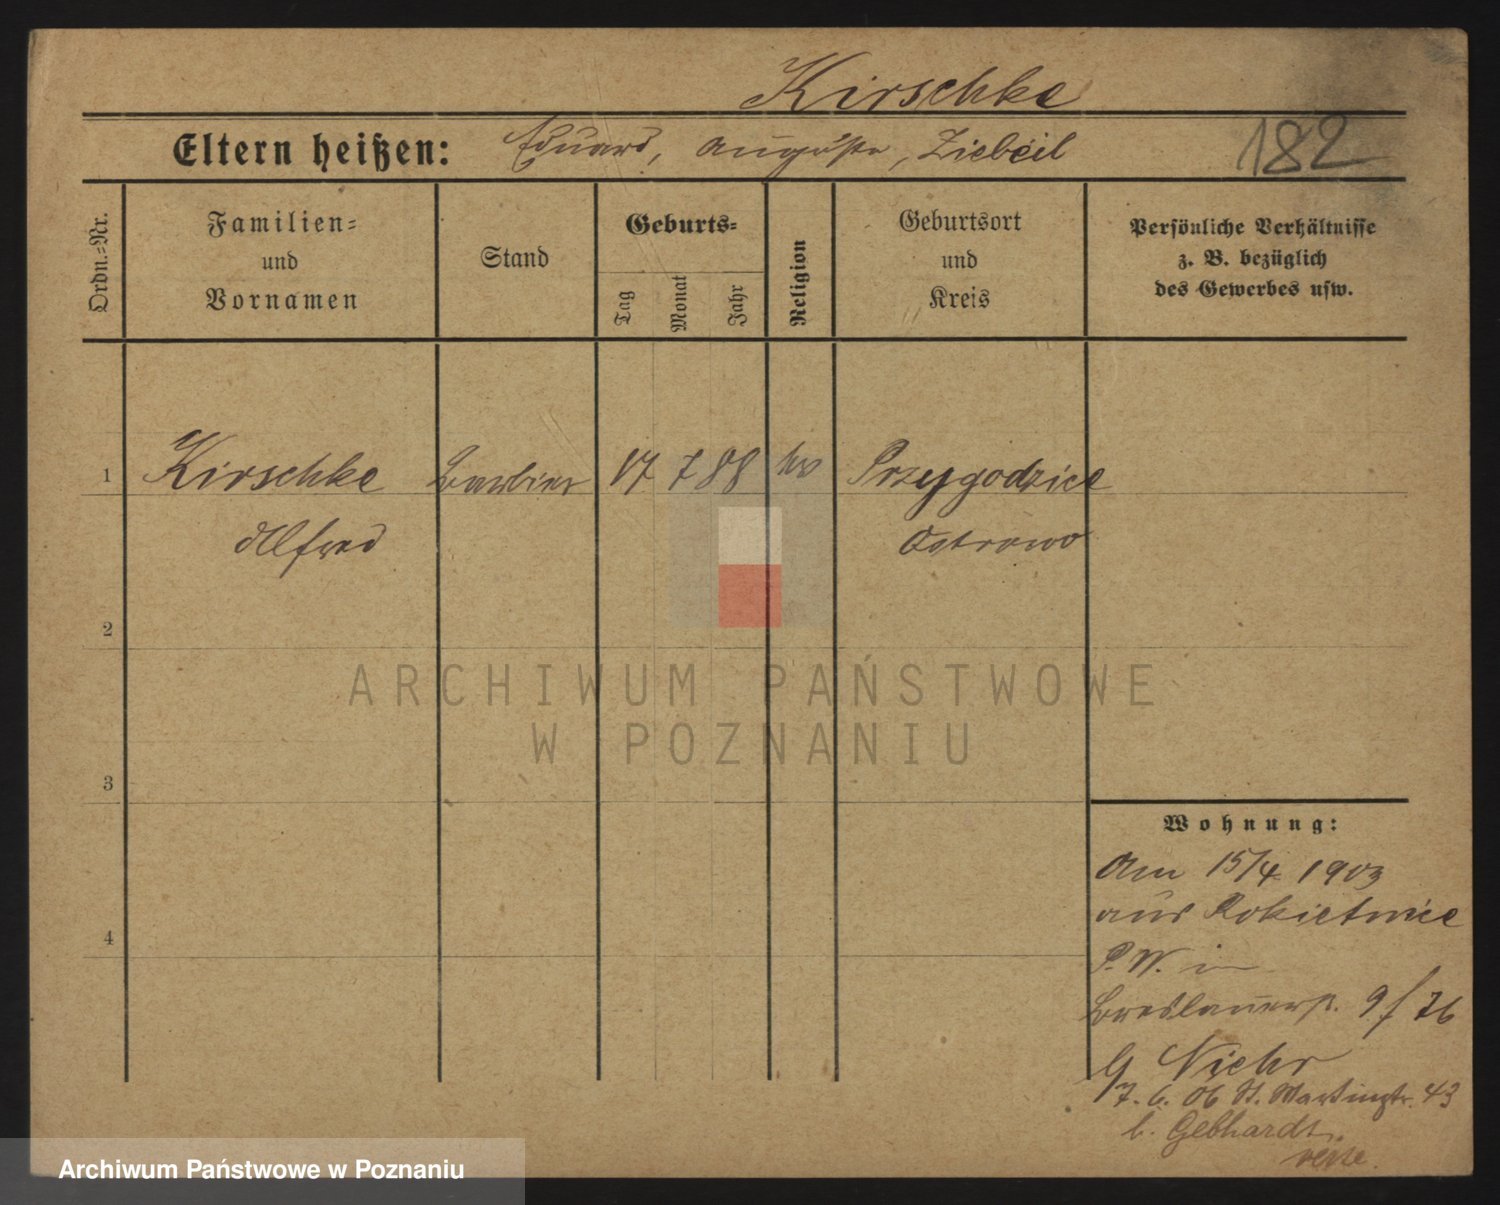 Kirschke
Eltern heißen: Eduard, Auguste, Ziebeil
182
Ordn.=Nr.
Familien=
und
Vornamen
Stand
Geburts=
Tag
Monat
Jahr
Religion
Geburtsort
und
Kreis
Persönliche Verhältnisse
z. B. bezüglich
des Gewerbes usw.
1 Kirschke Barbier 17 7 88 ev Przygodzice
Alfred Ostrowo
2
3
4
Wohnung:
Am 15/4 1903
aus Rokietnice
P. W. in
Breslauerst. 9/ 76
Niehr
7. 6. 06 St. Martinstr. 43
b. Gebhardt
ARCHIWUM PAŃSTWOWE
W POZNANIU
Archiwum Państwowe w Poznaniu